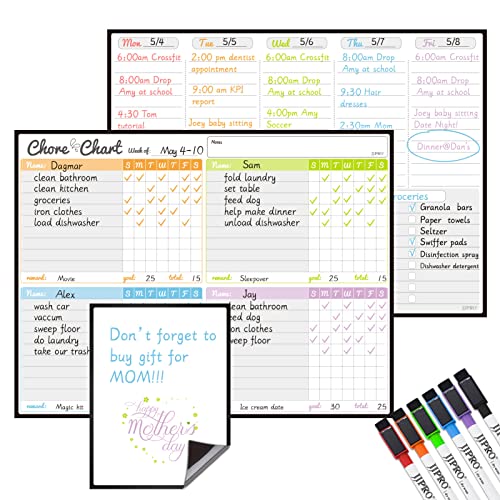 Mon 5/4
Tue 5/5
Wed 5/6
Thu 5/7
Fri 5/8
6:00am Crossfit
2:00 pm dentist
appointment
6:00am Crossfit
8:00am Drop
Amy at school
6:00am Crossfit
8:00am Drop
Amy at school
9:00 am KPJ
report
8:00am Drop
Amy at school
9:30 Hair
dresses
8:00am Drop
Amy at school
4:30 Tom
tutorial
Joey baby sitting
4:00pm Amy
Soccer
2:30am Mom
Joey baby sitting
Date Night!
Dinner@Dan's
roceries
Granola bars
Paper towels
Seltzer
Swiffer pads
Disinfection spray
Dishwasher detergent
JJPRO
Chore Chart
Week of: May 4-10
Notes
JJPRO
Name: Dagmar S M T W T F S
clean bathroom
clean kitchen
groceries
iron clothes
load dishwasher
reward: Movie goal: 25 total: 15
Name: Sam S M T W T F S
fold laundry
set table
feed dog
help make dinner
unload dishwasher
reward: Sleepover goal: 25 total: 15
Name: Alex S M T W T F S
wash car
vaccum
sweep floor
do laundry
take our trash
reward: Magic kit
Name: Jay S M T W T F S
clean bathroom
feed dog
iron clothes
sweep floor
reward: Ice cream date goal: 30 total: 25
Don't forget to
buy gift for
MOM!!!
happy
Mother's
day
JJPRO
JJPRO
JJPRO
JJPRO
JJPRO
JJPRO